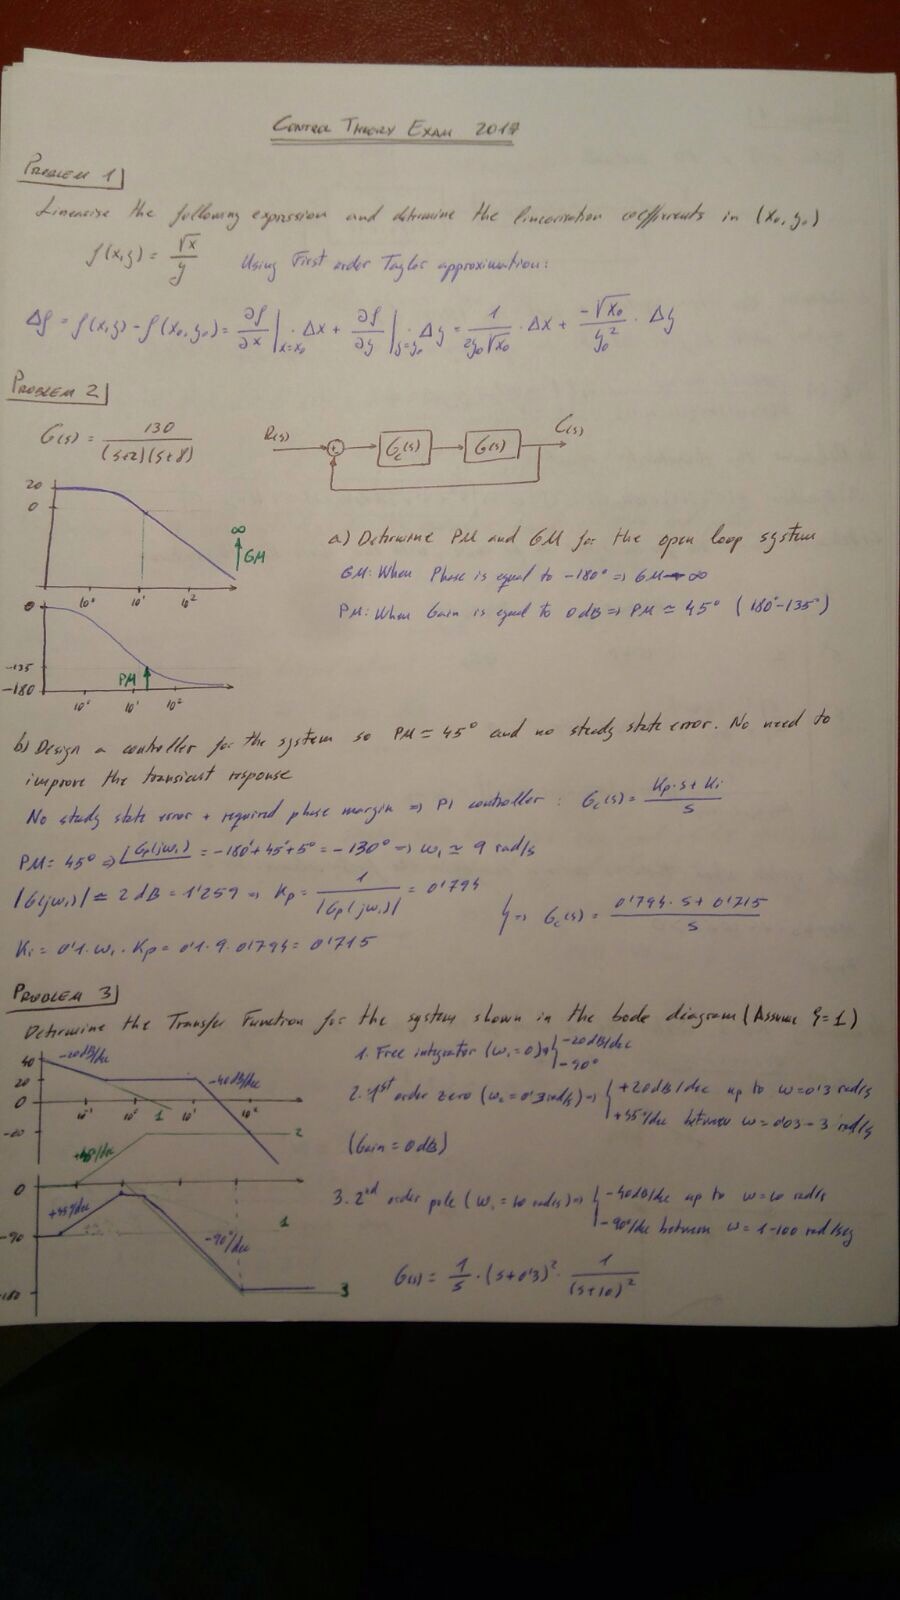 CONTROL THEORY EXAM 2017
PROBLEM 1
Linearise the following expression and determine the linearisation coefficients in (x₀, y₀)
f(x,y) = √x / y    Using First order Taylor approximation:
Δf = f(x,y) - f(x₀,y₀) = ∂f/∂x |x=x₀ · Δx + ∂f/∂y |y=y₀ · Δy = 1/(2y₀√x₀) · Δx + -√x₀/y₀² · Δy
PROBLEM 2
G(s) = 130 / (s+2)(s+8)
R(s) + Gc(s) G(s) C(s)
20
0
∞
GM
10⁰ 10¹ 10²
0
-135
-180
PM
10⁰ 10¹ 10²
a) Determine PM and GM for the open loop system
GM: When Phase is equal to -180° => GM → ∞
PM: When Gain is equal to 0dB => PM ≃ 45° (180°-135°)
b) Design a controller for the system so PM = 45° and no steady state error. No need to
improve the transient response
No study state error + required phase margin => PI controller : Gc(s) = (Kp·s + Ki) / s
PM = 45° => ∠Gp(jω₁) = -180°+45°+5° = -130° => ω₁ ≃ 9 rad/s
|G(jω₁)| ≃ 2 dB = 1'259 => Kp = 1 / |Gp(jω₁)| = 0'794
Ki = 0'1 · ω₁ · Kp = 0'1 · 9 · 0'794 = 0'715
} => Gc(s) = (0'794 · s + 0'715) / s
PROBLEM 3
Determine the Transfer Function for the system shown in the bode diagram (Assume ξ=1)
40
-20dB/dec
20
-40dB/dec
0
1
2
0
+45°/dec
-90
1
-90°/dec
-180
3
1. Free integrator (ω₁=0) -20dB/dec
-90°
2. 1st order zero (ω₂ = 0'3 rad/s) => { +20dB/dec up to ω=0'3 rad/s
+45°/dec between ω = 0'03 - 3 rad/s
(Gain = 0dB)
3. 2nd order pole (ω₁ = 10 rad/s) => { -40dB/dec up to ω = 10 rad/s
-90°/dec between ω = 1-100 rad/seg
G(s) = 1/s · (s+0'3)² · 1/(s+10)²